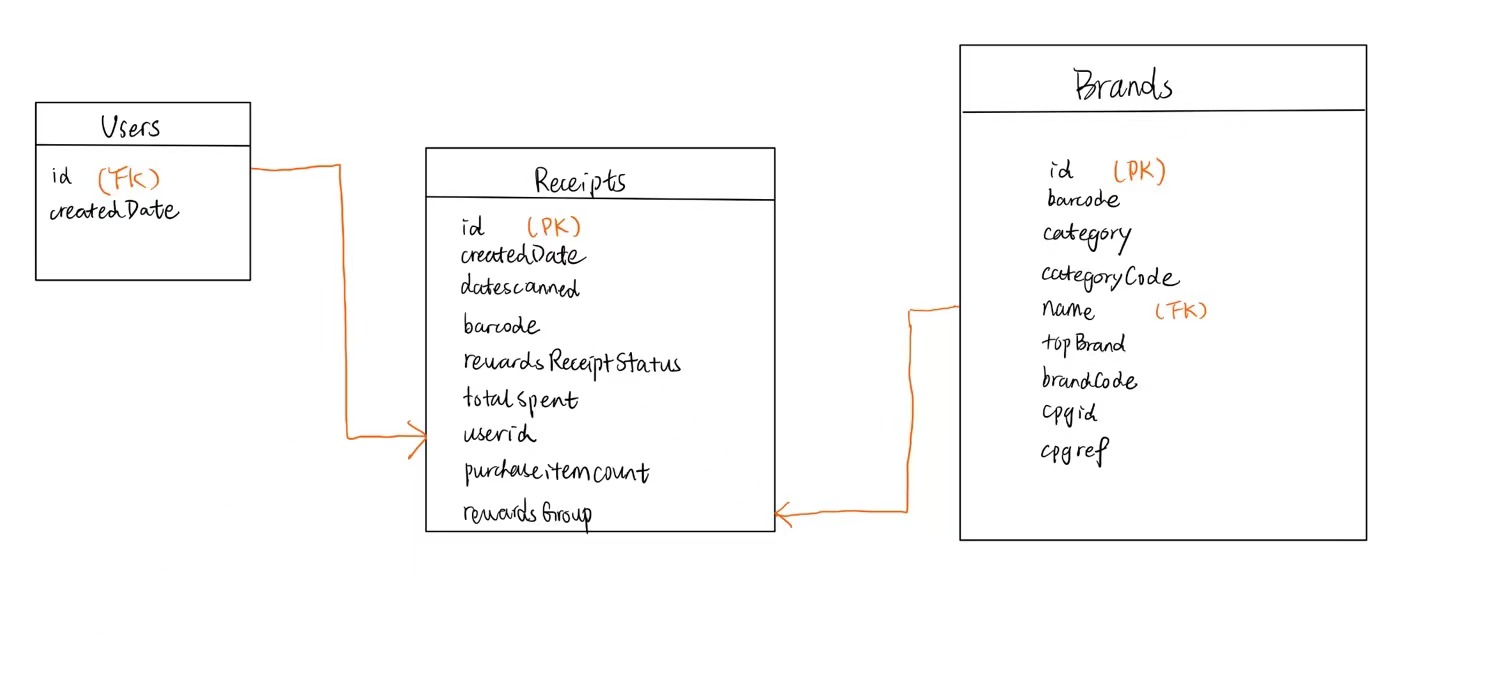 Users
id (FK)
createdDate
Receipts
id (PK)
createdDate
datescanned
barcode
rewardsReceiptStatus
totalspent
userid
purchaseitemcount
rewardsGroup
Brands
id (PK)
barcode
category
categoryCode
name (FK)
topBrand
brandCode
cpgid
cpgref